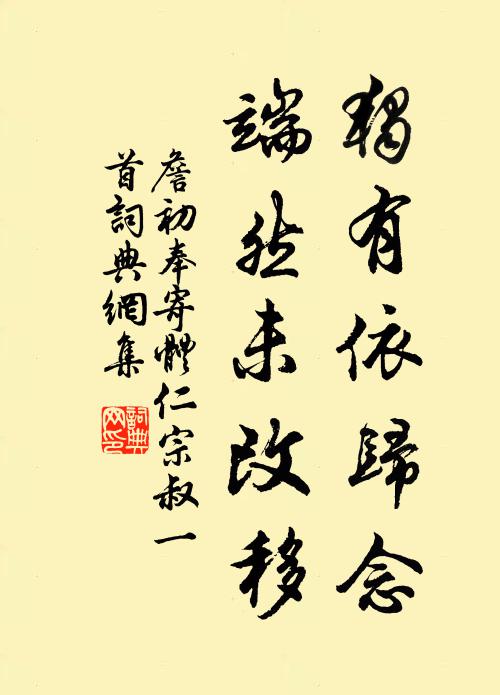 獨有依歸念
端然未改移
詹初奉寄體仁宗叔一
首詞典網集
詞典
网印